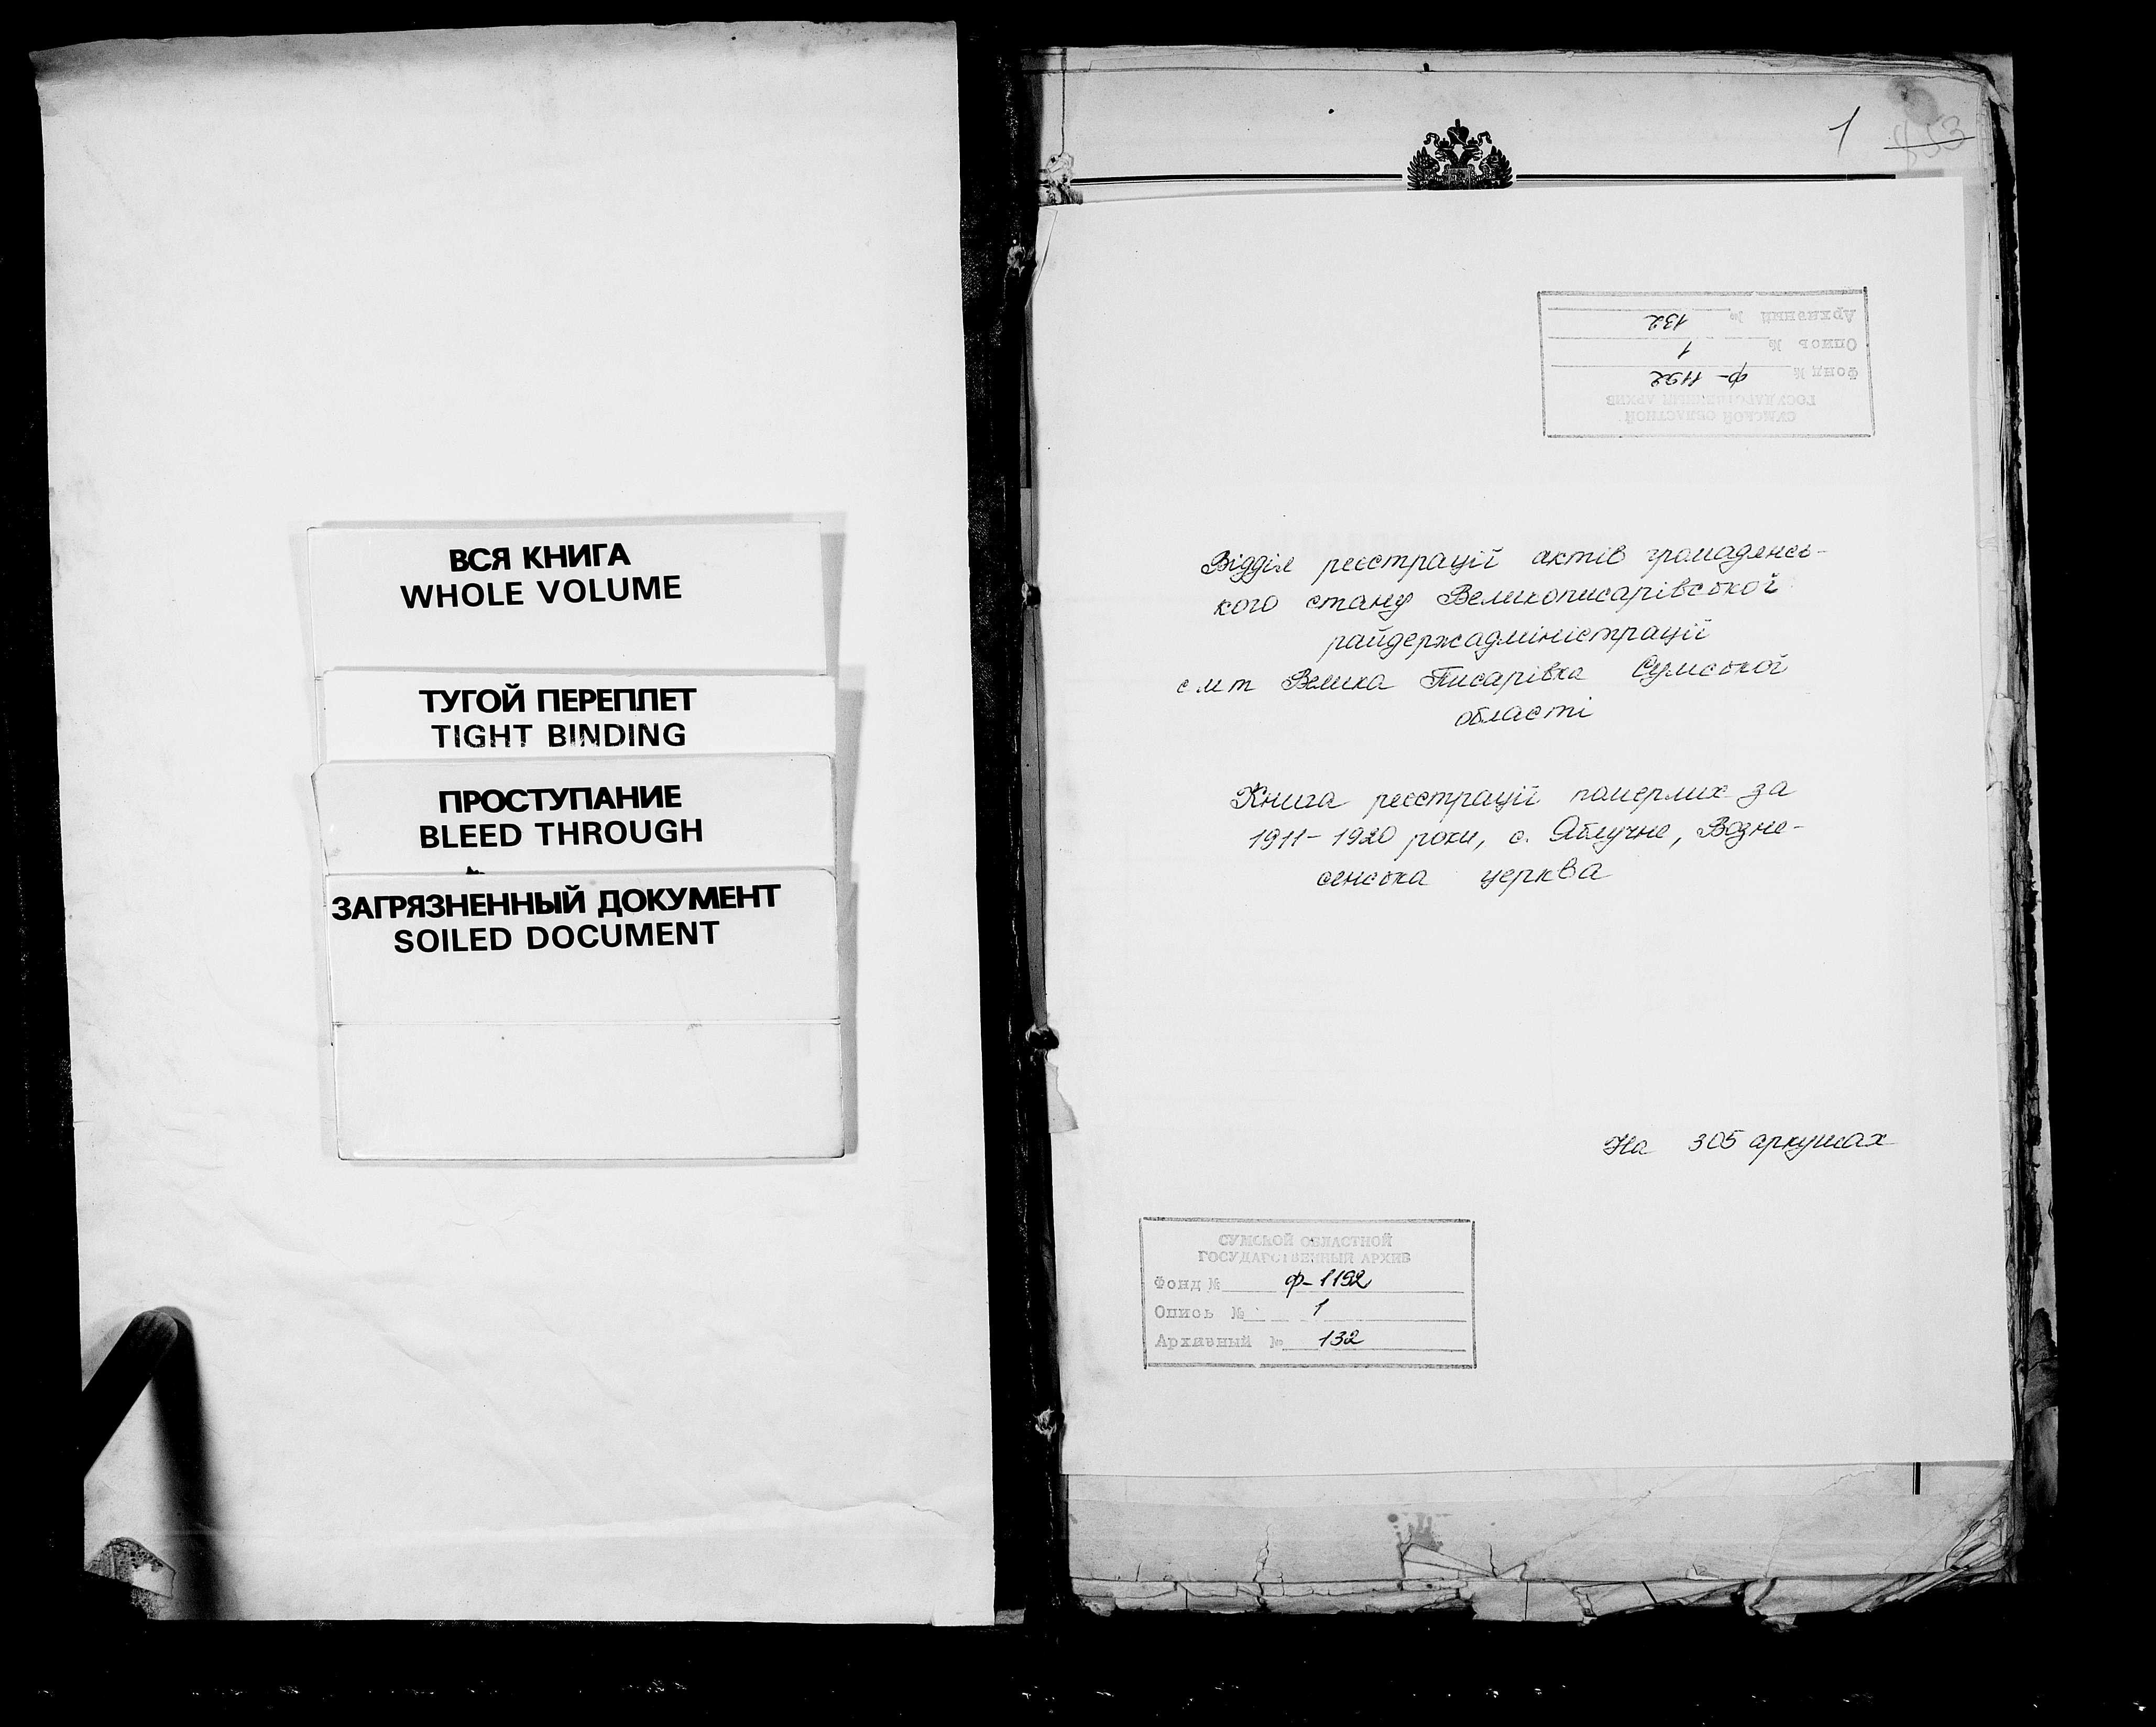 ВСЯ КНИГА
WHOLE VOLUME
ТУГОЙ ПЕРЕПЛЕТ
TIGHT BINDING
ПРОСТУПАНИЕ
BLEED THROUGH
ЗАГРЯЗНЕННЫЙ ДОКУМЕНТ
SOILED DOCUMENT
1
СУМСКОЙ ОБЛАСТНОЙ
ГОСУДАРСТВЕННЫЙ АРХИВ
Фонд № ф-1192
Опись № 1
Архивный № 132
Відділ реєстрації актів громадянсь-
кого стану Великописарівської
райдержадміністрації
смт Велика Писарівка Сумської
області
Книга реєстрації померлих за
1911-1920 роки, с. Яблучне, Возне-
сенська церква
На 305 аркушах
СУМСКОЙ ОБЛАСТНОЙ
ГОСУДАРСТВЕННЫЙ АРХИВ
Фонд № ф-1192
Опись № 1
Архивный № 132